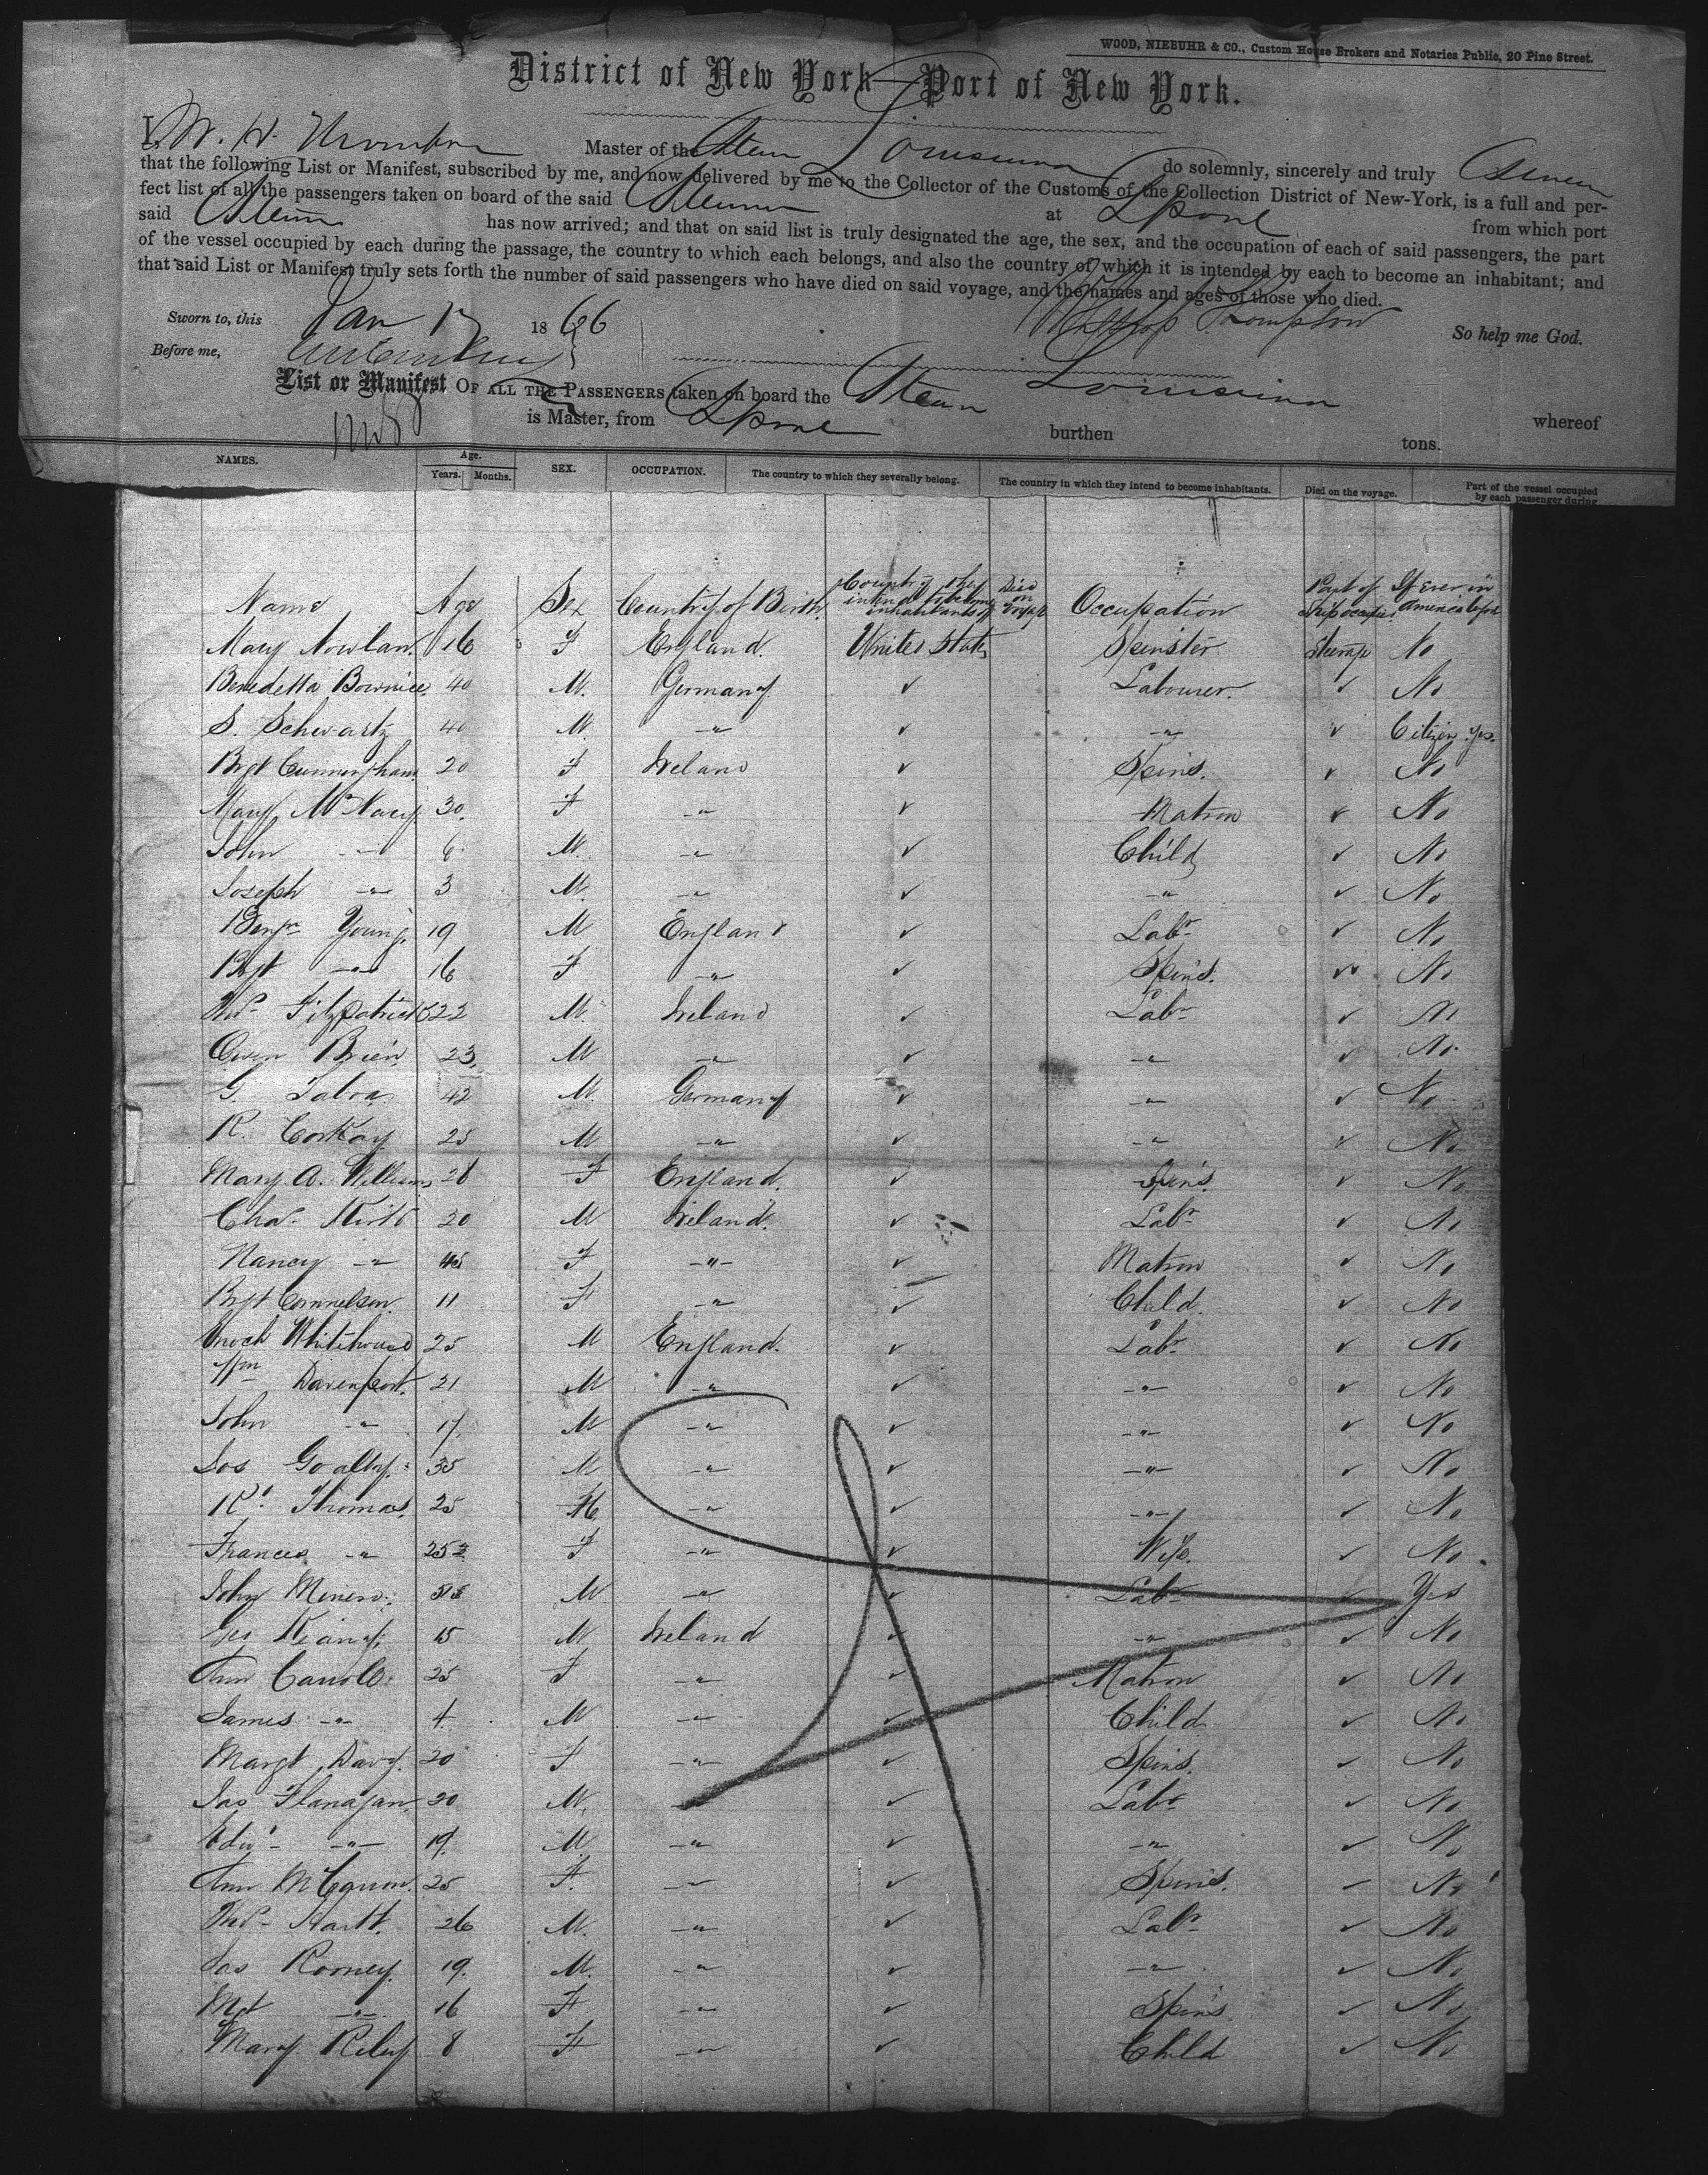 WOOD, NIEBUHR & CO., Custom House Brokers and Notaries Public, 20 Pine Street.
District of New York—Port of New York.
I, W. H. Thompson Master of the Steam Louisiana do solemnly, sincerely and truly Swear
that the following List or Manifest, subscribed by me, and now delivered by me to the Collector of the Customs of the Collection District of New-York, is a full and per-
fect list of all the passengers taken on board of the said Steamer at Lpool from which port
said Steamer has now arrived; and that on said list is truly designated the age, the sex, and the occupation of each of said passengers, the part
of the vessel occupied by each during the passage, the country to which each belongs, and also the country of which it is intended by each to become an inhabitant; and
that said List or Manifest truly sets forth the number of said passengers who have died on said voyage, and the names and ages of those who died.
Sworn to, this Jan 17 1866 Thompson So help me God.
Before me,
List or Manifest OF ALL THE PASSENGERS taken on board the Steam Louisiana whereof
is Master, from Lpool burthen tons.
NAMES. Age. Years. Months. SEX. OCCUPATION. The country to which they severally belong. The country in which they intend to become inhabitants. Died on the voyage. Part of the vessel occupied by each passenger during
Name Age Sex Country of Birth Country they intend to become inhabitants of Died on voyage Occupation Part of Ship occupied If Ever in America before
Mary Nowlan 16 F England. United States Spinster Steerage No
Benedetta 40 M. Germany ✓ Labourer. ✓ No
S. Schwartz 40 M. -"- ✓ -"- ✓ Citizen Yes.
Brgt Cunningham 20 F Ireland ✓ Spins. ✓ No
Mary 30. F -"- ✓ Matron ✓ No
John -"- 6 M. -"- ✓ Child ✓ No
Joseph -"- 3 M. -"- ✓ -"- ✓ No
Benjn Young. 19 M England ✓ Labr ✓ No
Bgt -"- 16 F -"- ✓ Spins. ✓ No
Thos Fitzpatrick 22 M. Ireland ✓ Labr ✓ No
Owen Brien 23. M -"- ✓ -"- ✓ No.
G. 42 M. Germany ✓ -"- ✓ No
R. 25 M -"- ✓ -"- ✓ No
Mary A. Williams 28 F England. ✓ Spins. ✓ No
Chas. 20 M Ireland. ✓ Labr ✓ No
Nancy -"- F -"- ✓ Matron ✓ No
Bgt 11 F -"- ✓ Child. ✓ No
Enoch Whitehouse 25 M England. ✓ Labr ✓ No
Wm Davenport. 21 M -"- ✓ -"- ✓ No
John -"- 17. M -"- ✓ -"- ✓ No
Jos 35 M -"- ✓ -"- ✓ No
Rd Thomas. 25 M -"- ✓ -"- ✓ No
Frances -"- 25 F -"- ✓ Wife. ✓ No
John M -"- ✓ Labr ✓ Yes
Geo 15 M Ireland ✓ -"- ✓ No
Ann 25 F -"- ✓ Matron ✓ No
James -"- 4. M -"- ✓ Child ✓ No
Margt Davy. 20 F -"- ✓ Spins. ✓ No
Jas Flanagan. 20 M. -"- ✓ Labr ✓ No
Edwd -"- 19. M. -"- ✓ -"- ✓ No
Ann 25 F. -"- ✓ Spins. ✓ No
Thos Hartt. 26 M. -"- ✓ Labr ✓ No
Jas Rooney. 19. M. -"- ✓ -"- ✓ No
Mgt -"- 16 F -"- ✓ Spins ✓ No
Mary Riley 8 F -"- ✓ Child ✓ No